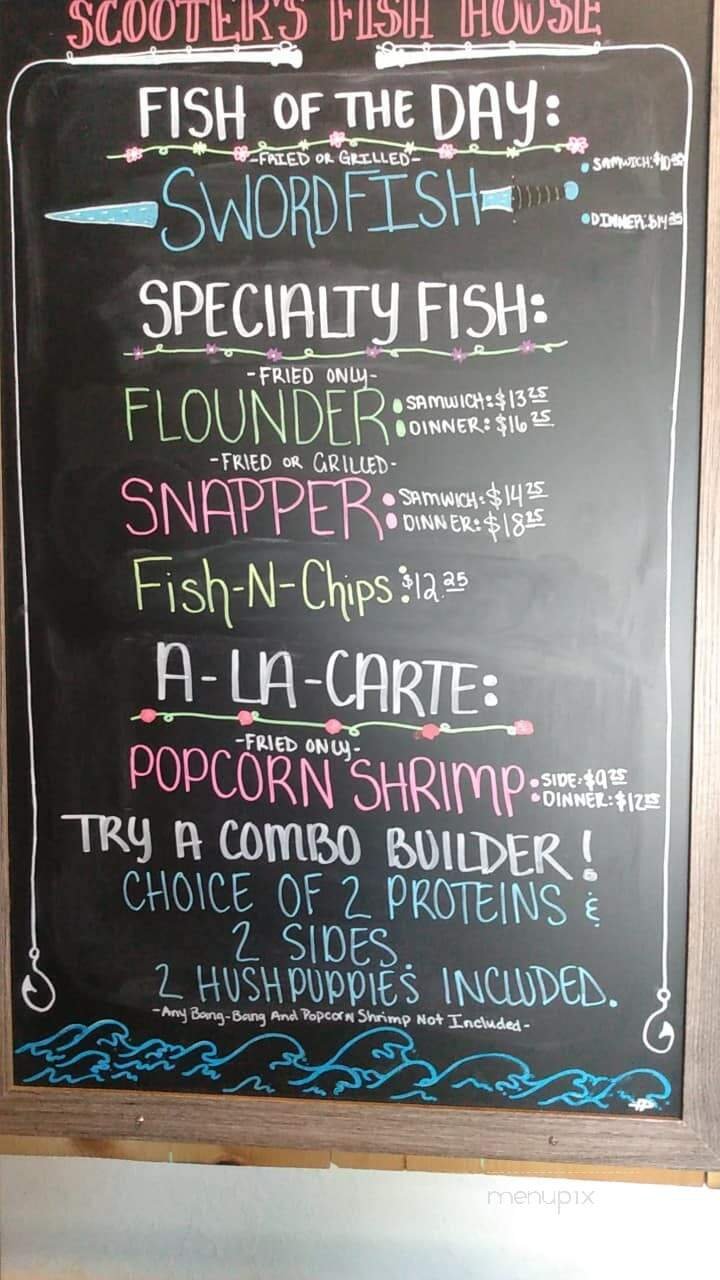 SCOOTER'S FISH HOUSE
FISH OF THE DAY:
-FRIED OR GRILLED-
SWORDFISH
• SAMWICH:
• DINNER: $14 25
SPECIALTY FISH:
-FRIED ONLY-
FLOUNDER
• SAMWICH: $13 25
• DINNER: $16 25
-FRIED OR GRILLED-
SNAPPER
• SAMWICH: $14 25
• DINNER: $18 25
Fish-N-Chips: $12.25
A-LA-CARTE:
-FRIED ONLY-
POPCORN SHRIMP
• SIDE: $9 25
• DINNER: $12 25
TRY A COMBO BUILDER!
CHOICE OF 2 PROTEINS &
2 SIDES.
2 HUSHPUPPIES INCLUDED.
-Any Bang-Bang And Popcorn Shrimp Not Included-
menupix